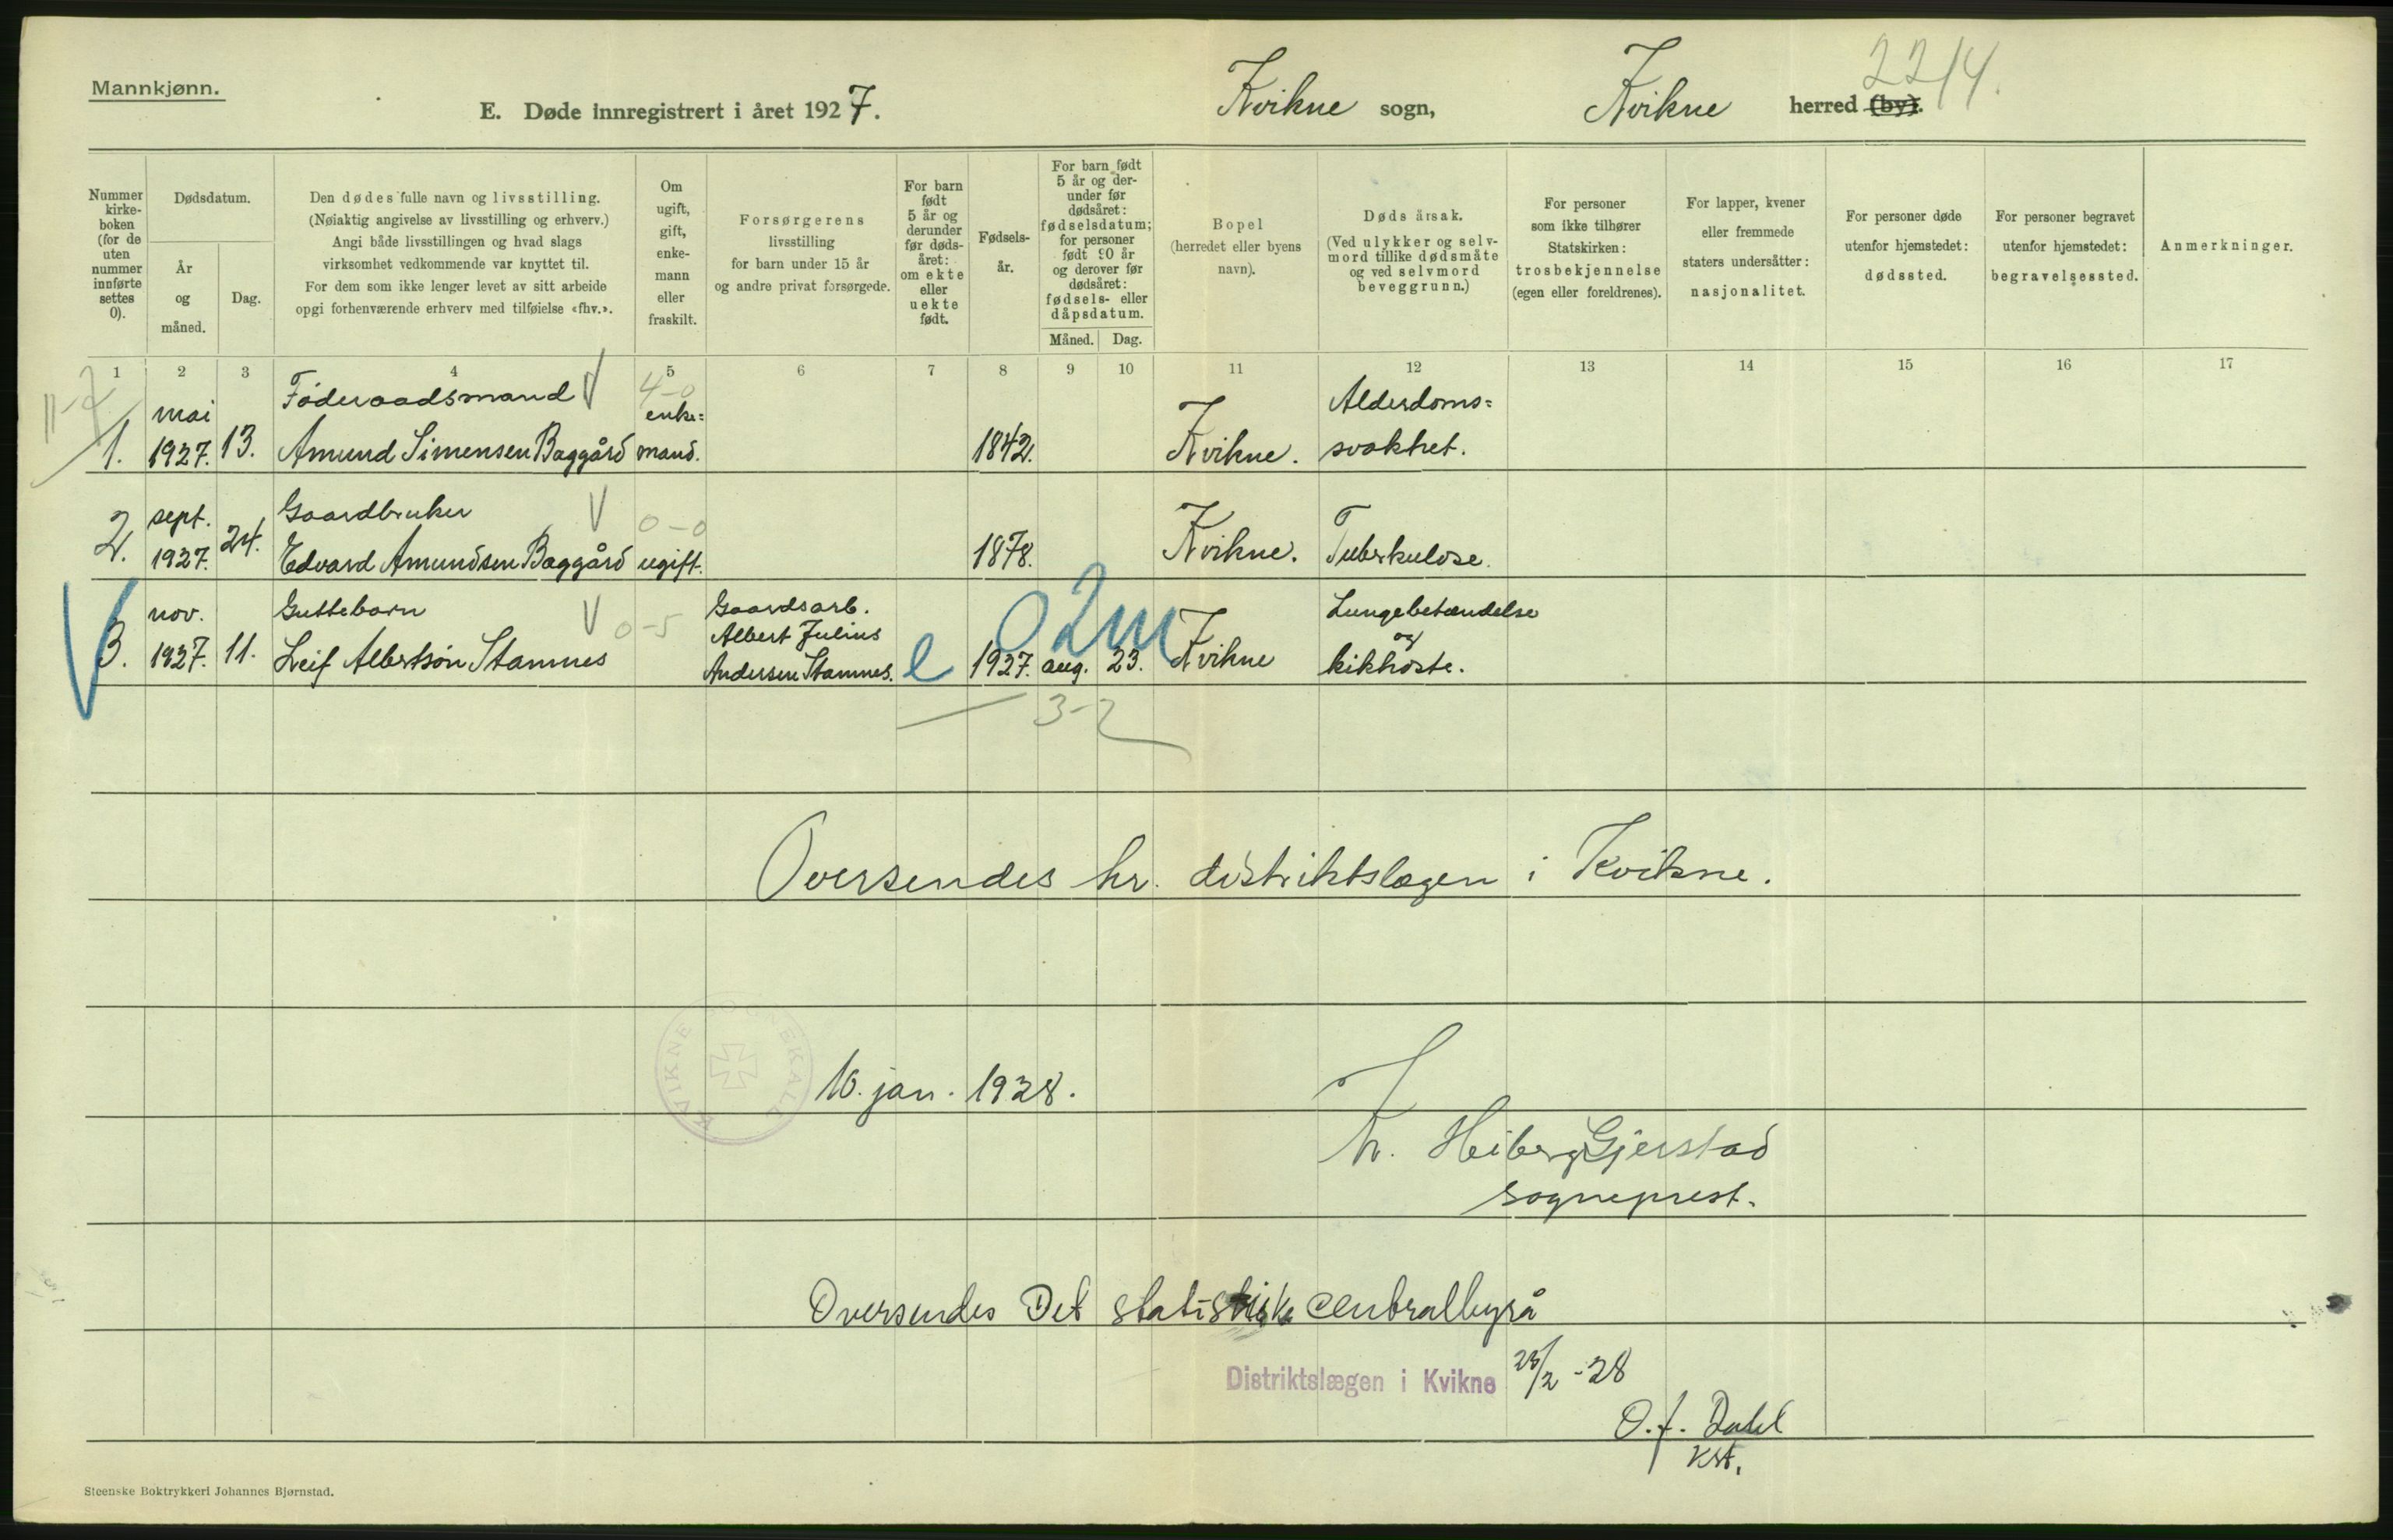 Mannkjønn.
E. Døde innregistrert i året 1927.
Kvikne sogn,
Kvikne herred (by).
2214.
Nummer kirke- boken (for de uten nummer innførte settes 0).
Dødsdatum.
År og måned.
Dag.
Den dødes fulle navn og livsstilling.
(Nøiaktig angivelse av livsstilling og erhverv.)
Angi både livsstillingen og hvad slags
virksomhet vedkommende var knyttet til.
For dem som ikke lenger levet av sitt arbeide
opgi forhenværende erhverv med tilføielse «fhv.».
Om ugift, gift, enke- mann eller fraskilt.
Forsørgerens
livsstilling
for barn under 15 år
og andre privat forsørgede.
For barn født 5 år og derunder før døds- året: om ekte eller uekte født.
Fødsels- år.
For barn født 5 år og der- under før dødsåret: fødselsdatum; for personer født 90 år og derover før dødsåret: fødsels- eller dåpsdatum.
Måned. Dag.
Bopel
(herredet eller byens
navn).
Døds årsak.
(Ved ulykker og selv-
mord tillike dødsmåte
og ved selvmord
beveggrunn.)
For personer
som ikke tilhører
Statskirken:
trosbekjennelse
(egen eller foreldrenes).
For lapper, kvener
eller fremmede
staters undersåtter:
nasjonalitet.
For personer døde
utenfor hjemstedet:
dødssted.
For personer begravet
utenfor hjemstedet:
begravelsessted.
Anmerkninger.
1 2 3 4 5 6 7 8 9 10 11 12 13 14 15 16 17
mai Føderaadsmand V 4-0 enke= Alderdoms=
1. 1927. 13. Amund Simensen Baggård mand. 1842. Kvikne. svakhet.
sept. Gaardbruker V 0-0
2. 1927. 24. Edvard Amundsen Baggård ugift. 1878. Kvikne. Tuberkulose.
nov. Guttebarn V 0-5 Gaardsarb. 02m Lungebetændelse
Albert Julius og
3. 1927. 11. Leif Albertsøn Stamnes Andersen Stamnes. e 1927. aug. 23. Kvikne kikhoste.
3-2
Oversendes hr. distriktslægen i Kvikne.
KVIKNE SOGNEKALD
10. jan. 1928.
Heiberg Gjerstad
sogneprest.
Oversendes Det statistiske centralbyrå
Distriktslægen i Kvikne 23/2 - 28
O. f. Dahl
Kst.
Steenske Boktrykkeri Johannes Bjørnstad.